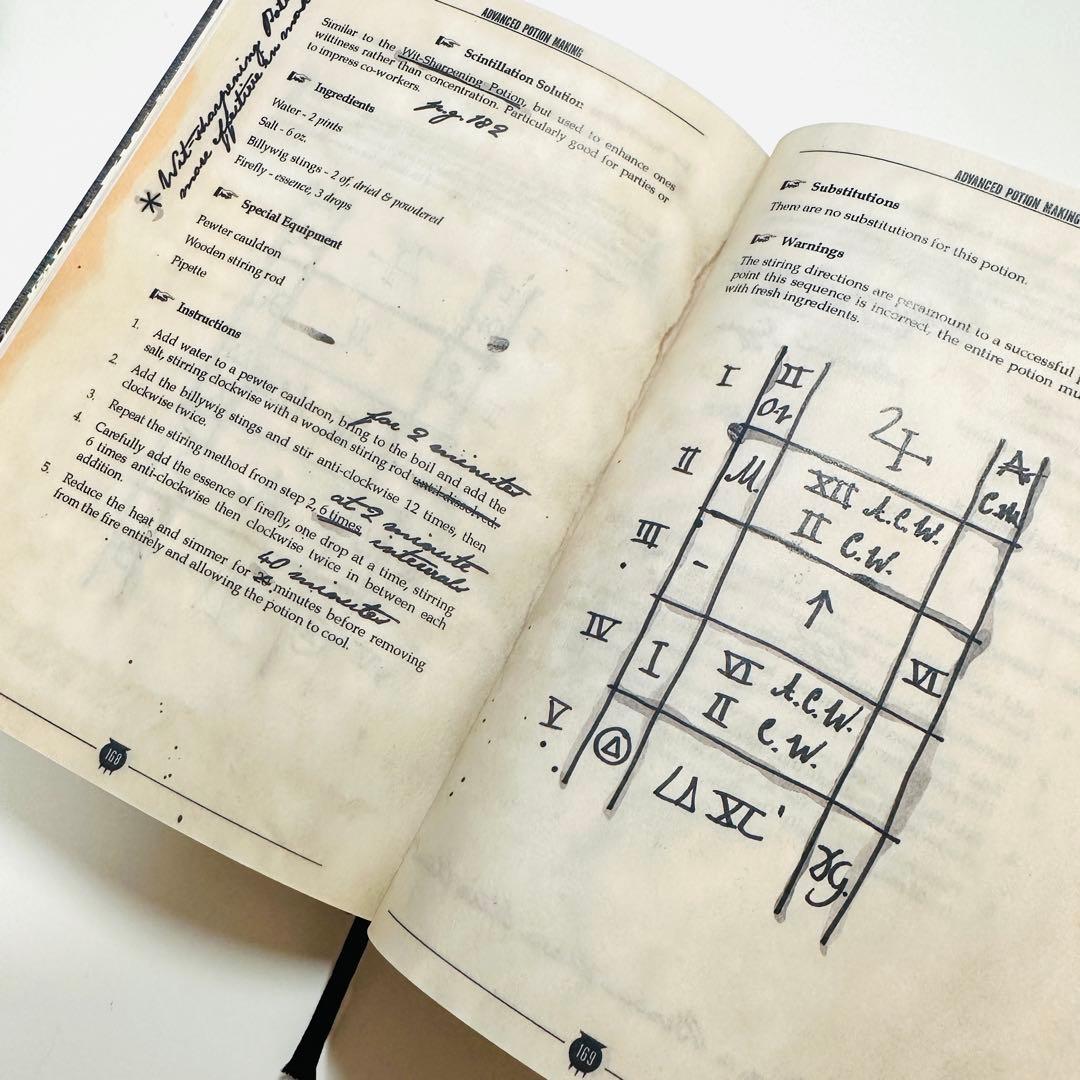 ADVANCED POTION MAKING
* Wit-sharpening
more effective in
Scintillation Solution:
Similar to the Wit-Sharpening Potion, but used to enhance ones
wittiness rather than concentration. Particularly good for parties or
to impress co-workers.
pg. 182
Ingredients
Water - 2 pints
Salt - 6 oz.
Billywig stings - 2 of, dried & powdered
Firefly - essence, 3 drops
Special Equipment
Pewter cauldron
Wooden stiring rod
Pipette
Instructions
1. Add water to a pewter cauldron, bring to the boil and add the
salt, stirring clockwise with a wooden stiring rod until dissolved.
for 2 minutes
2. Add the billywig stings and stir anti-clockwise 12 times, then
clockwise twice.
3. Repeat the stiring method from step 2, 6 times.
at 2 minute
intervals
4. Carefully add the essence of firefly, one drop at a time, stirring
6 times anti-clockwise then clockwise twice in between each
addition.
5. Reduce the heat and simmer for minutes before removing
40 minutes
from the fire entirely and allowing the potion to cool.
168
ADVANCED POTION MAKING
Substitutions
There are no substitutions for this potion.
Warnings
The stiring directions are peramount to a successful
point this sequence is incorrect, the entire potion
with fresh ingredients.
I II
II M. XII A.C.W.
II C.W.
III - ↑
IV I VI A.C.W. VI
II C.W.
V XL'
169